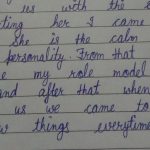 us with the
ting her I came
she is the calm
personality. From that
my role model
and after that when
us we came to
things everytime